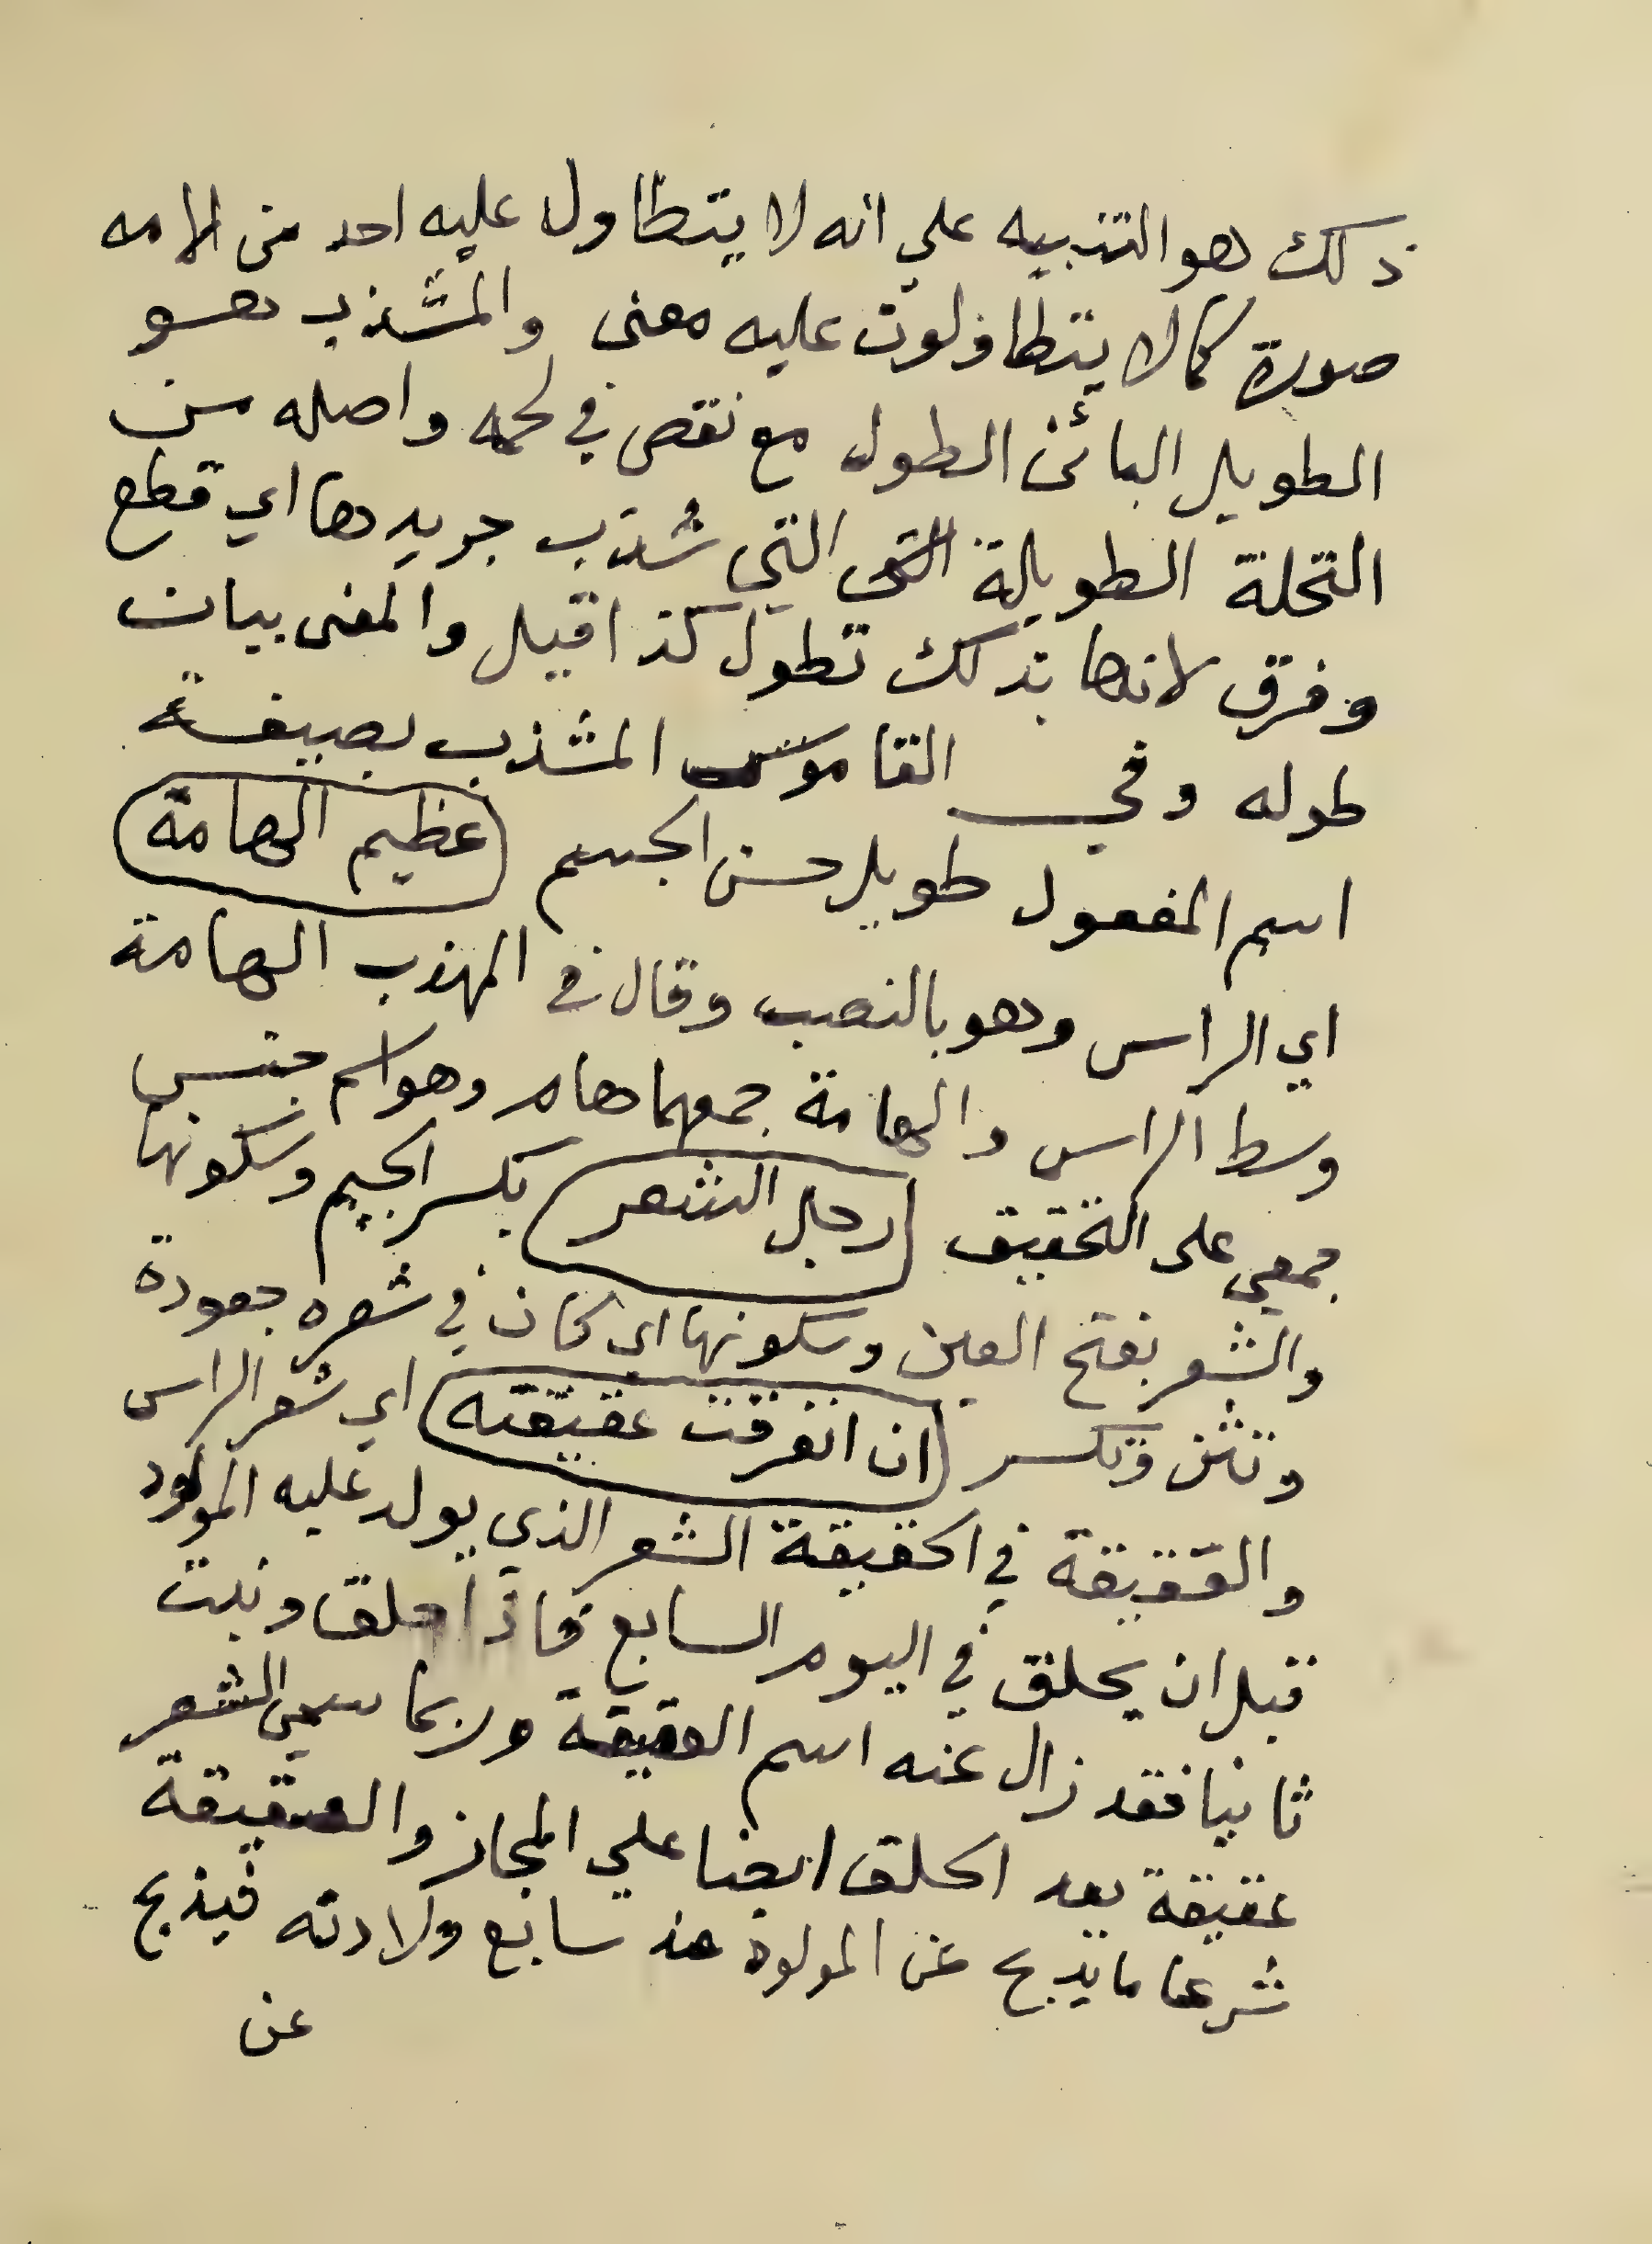 ذلك هو التنبيه علي انه لا يتطاول عليه احد من الامه
صورة كما لا يتطاولون عليه معنى والمشذب هو
الطويل البائن الطول مع نقص في لحمه واصله من
النخلة الطويلة التي التي شذب جريدها اي قطع
وفرق لانها بذلك تطول كذا قيل والمعنى بيان
طوله وفي القاموس المشذب بصيغة
اسم المفعول طويل حسن الجسم (عظيم الهامة)
اي الراس وهو بالنصب وقال في المهذب الهامة
وسط الراس والهامة جمعهما هام وهو اسم جنس
جمعي على التحقيق (رجل الشعر) بكسر الجيم وسكونها
والشعر بفتح العين وسكونها اي كان في شعره جعودة
وتثن وتكسر (ان انفرقت عقيقته) اي شعر الراس
والعقيقة في الحقيقة الشعر الذي يولد عليه المولود
قبل ان يحلق في اليوم السابع فاذا حلق ونبت
ثانيا فقد زال عنه اسم العقيقة وربما سمي الشعر
عقيقة بعد الحلق ايضا علي المجاز والعقيقة
شرعا ما يذبح عن المولود عند سابع ولادته فيذبح
عن